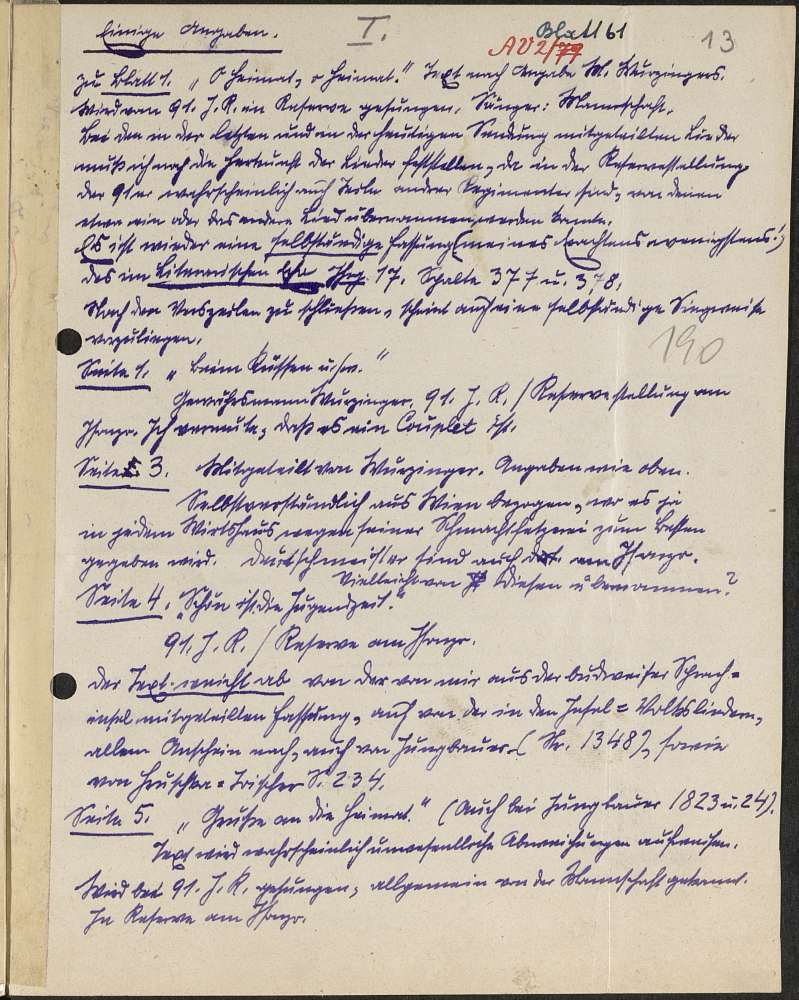 Einige Angaben.
I.
Blatt 61
AV 2/79
13
Zu Blatt 1. „O Heimat, o Heimat." Text nach Angabe M. Wurzingers.
Wird vom 91. J. R. in Reserve gesungen. Sänger: Mannschaft.
Bei den in der letzten und in der heutigen Sendung mitgeteilten Lieder
muß ich noch die Herkunft der Lieder feststellen, da in der Reservestellung
der 91er wahrscheinlich auch Teile andrer Regimenter sind, von denen
etwa ein oder das andere Lied übernommen werden konnte.
Es ist wieder eine selbständige Fassung (meines Erachtens wenigstens!)
des im Literarischen Jhrg. 17. Spalte 377 u. 378.
Nach den Verszeilen zu schließen, scheint auch eine selbständige Singweise
vorzuliegen.
190
Seite 1. „Beim Küssen u.s.w."
Gewährsmann Wurzinger, 91. J. R. / Reservestellung am
Isonzo. Ich vermute, daß es ein Couplet ist.
Seite 3. Mitgeteilt von Wurzinger. Angaben wie oben.
Selbstverständlich aus Wien bezogen, wo es ja
in jedem Wirtshaus wegen seiner Schmachtfetzerei zum Besten
gegeben wird. Deutschmeister sind auch dort am Isonzo.
Vielleicht von diesen übernommen?
Seite 4. „Schön ist die Jugendzeit."
91. J. R. / Reserve am Isonzo.
Der Text weicht ab von der von mir aus der Budweiser Sprach=
insel mitgeteilten Fassung, auch von der in den Insel=Volksliedern,
allem Anschein nach, auch von Jungbauer (Nr. 1348), sowie
von Hruschka=Toischer S. 234.
Seite 5. „Grüße an die Heimat." (Auch bei Jungbauer 1823 u. 24).
Text wird wahrscheinlich unwesentliche Abweichungen aufweisen.
Wird bei 91. J. R. gesungen, allgemein von der Mannschaft gekannt.
In Reserve am Isonzo.